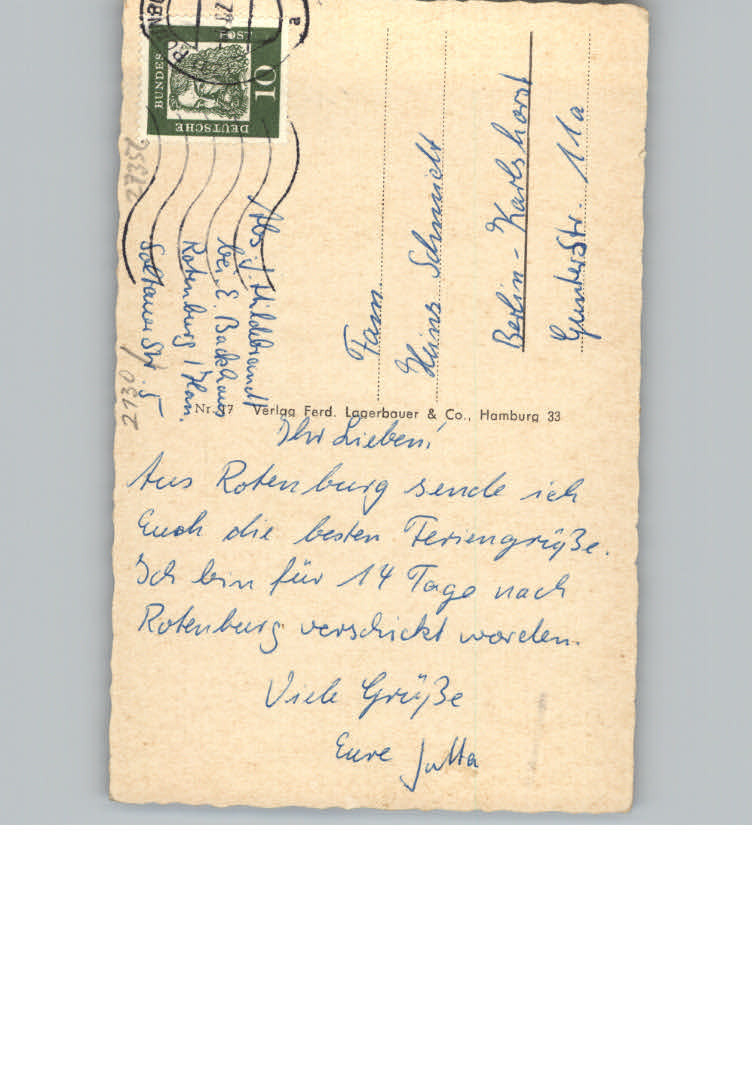 Ihr Lieben!
Aus Rotenburg sende ich
Euch die besten Feriengrüße.
Ich bin für 14 Tage nach
Rotenburg verschickt worden.
Viele Grüße
Eure Jutta
Fam.
Heinz Schmidt
Berlin - Karlshorst
Gunterstr. 11a
Abs. J. Hildebrandt
bei E. Backhaus
Rotenburg / Han.
Soltauer Str. 5
Nr. 17 Verlag Ferd. Lagerbauer & Co., Hamburg 33
DEUTSCHE
BUNDES
10
a
27356
2130/